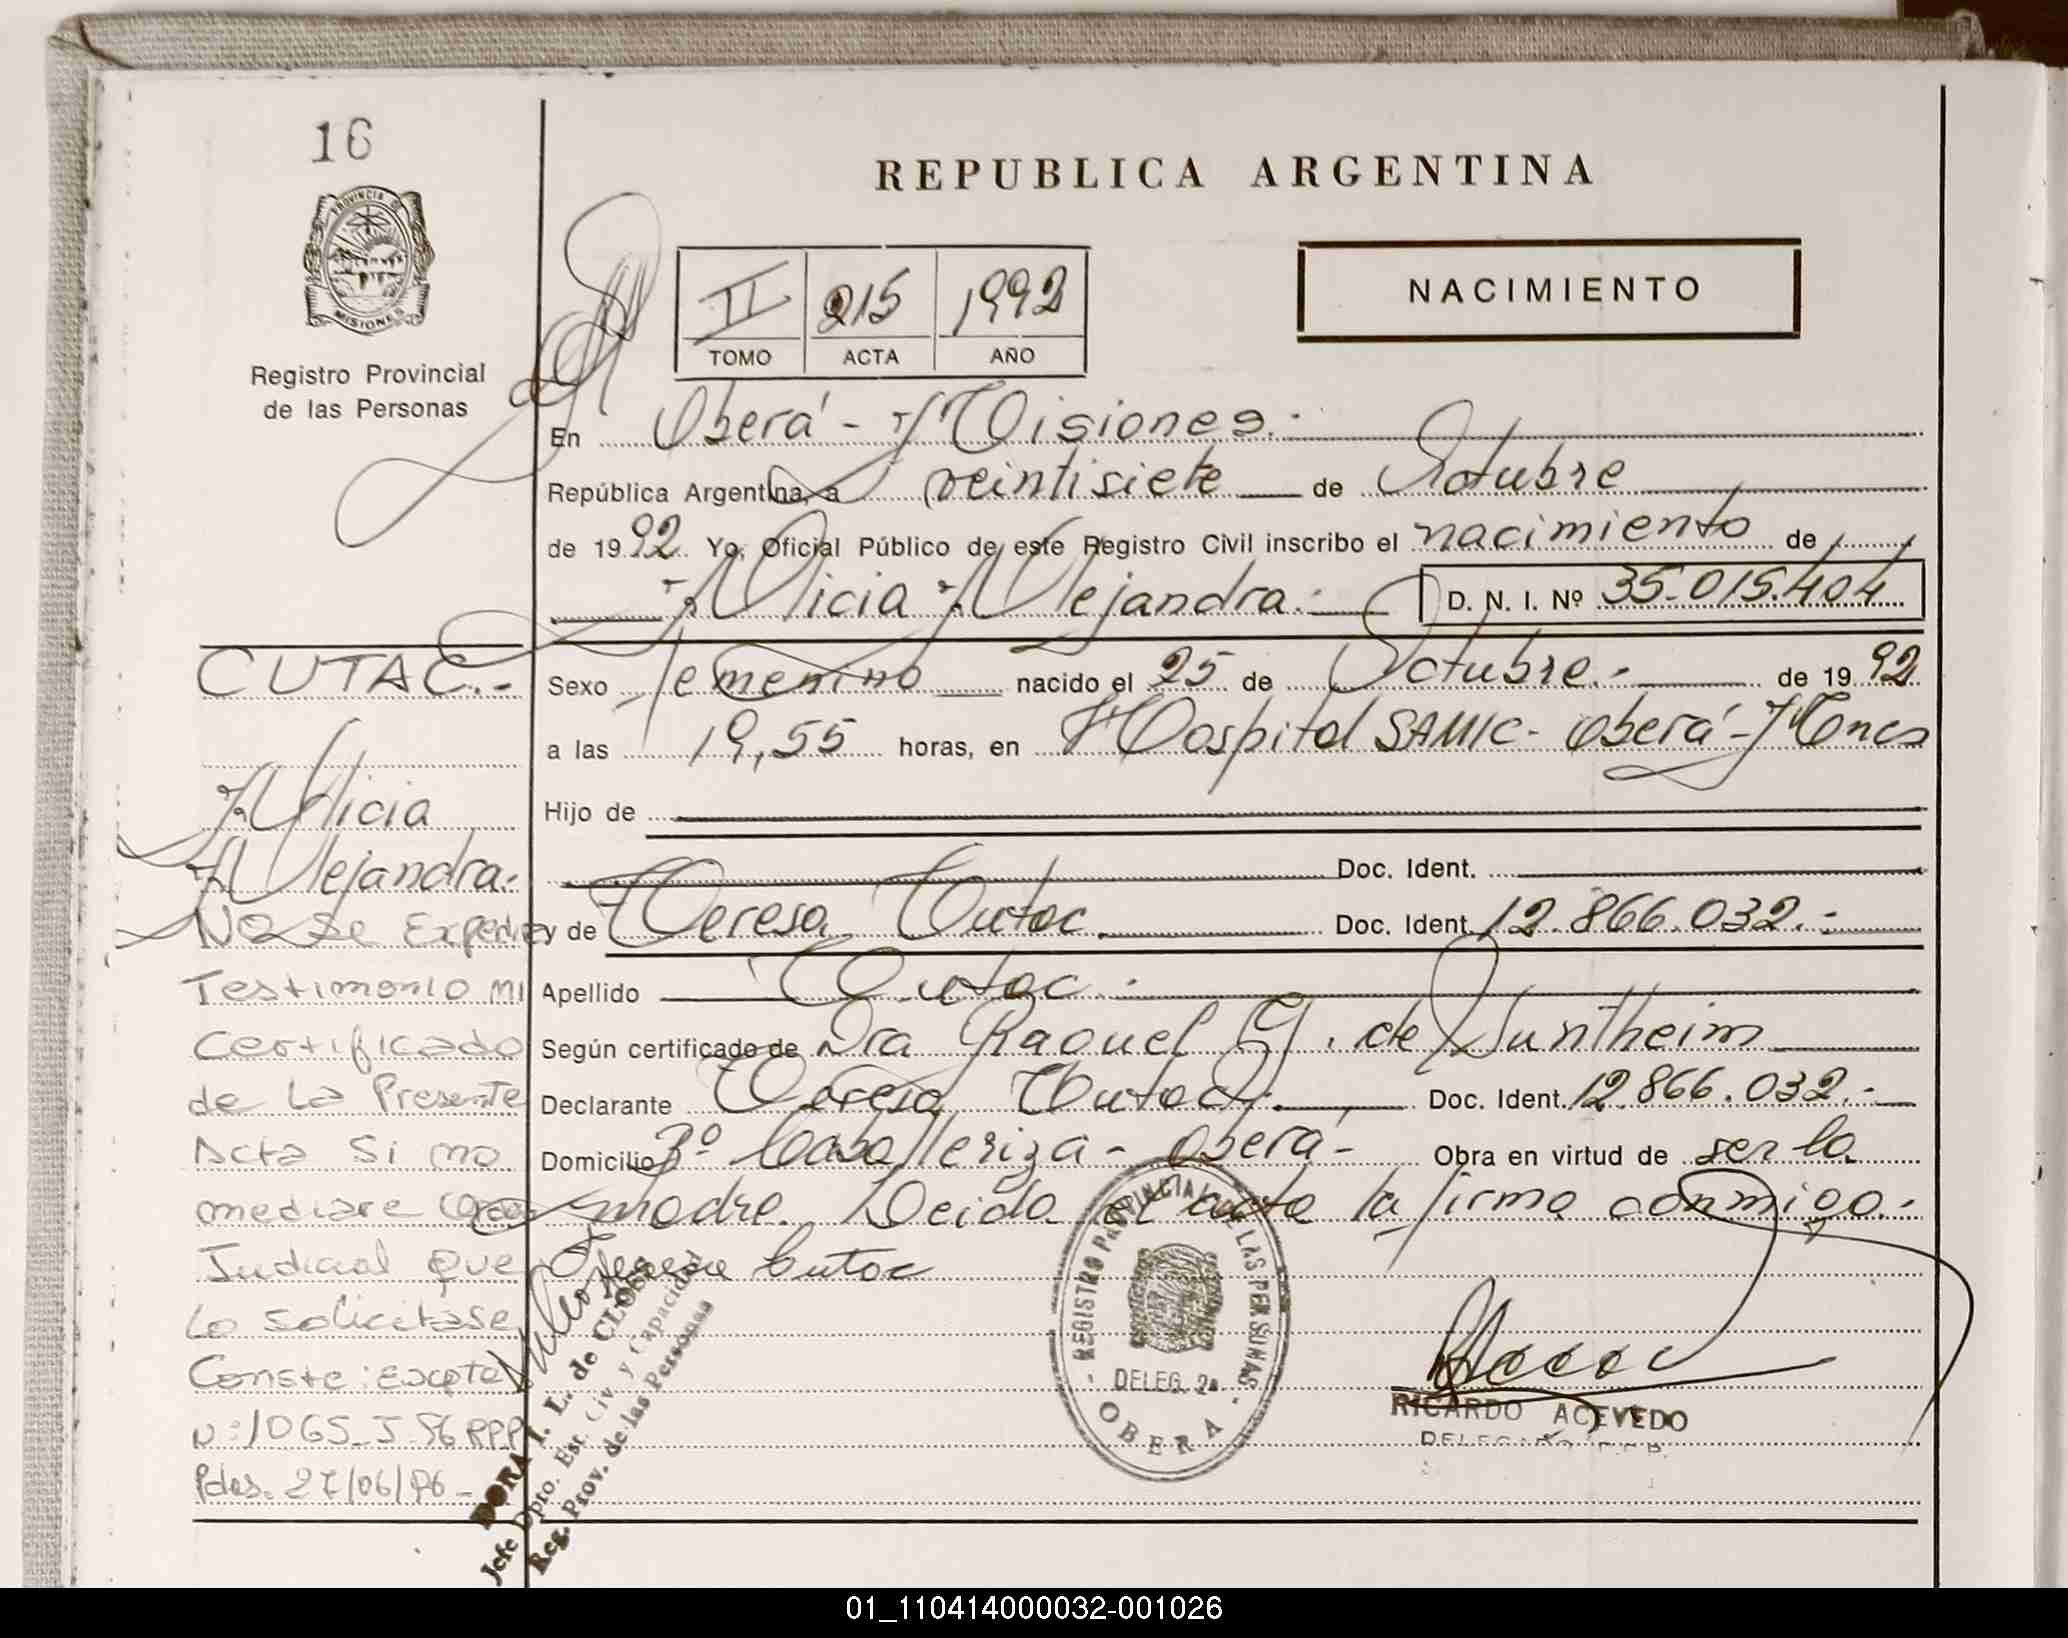 16
REPUBLICA ARGENTINA
PROVINCIA DE
MISIONES
Registro Provincial
de las Personas
II 215 1992
TOMO ACTA AÑO
NACIMIENTO
En Oberá - Misiones.-
República Argentina, a veintisiete de Octubre
de 1992. Yo, Oficial Público de este Registro Civil inscribo el nacimiento de
Alicia Alejandra.- D. N. I. Nº 35.015.404
Sexo femenino nacido el 25 de Octubre.- de 1992
a las 19,55 horas, en Hospital SAMIC - Oberá - Mnes
Hijo de
Doc. Ident.
y de Teresa Cutac. Doc. Ident. 12.866.032.-
Apellido Cutac.-
Según certificado de Dra Raquel G. de Suntheim
Declarante Teresa Cutac.- Doc. Ident. 12.866.032.-
Domicilio 3º Caballeriza - Oberá - Obra en virtud de ser la
madre. Leida el acta la firma conmigo.-
Teresa Cutac
CUTAC.-
Alicia
Alejandra.-
No se Expedira
Testimonio Ni
Certificado
de La Presente
Acta Si no
mediare Orden
Judicial que
Lo solicitase
Conste: Expte
N:1065-J-96 RPP
Pdas. 27/06/96-
DORA I. L. de CLOSS
Jefe Dpto. Est. Civ. y Capacidad
Reg. Prov. de las Personas
REGISTRO PROVINCIAL DE LAS PERSONAS
DELEG. 2a
- OBERA -
RICARDO ACEVEDO
01_110414000032-001026